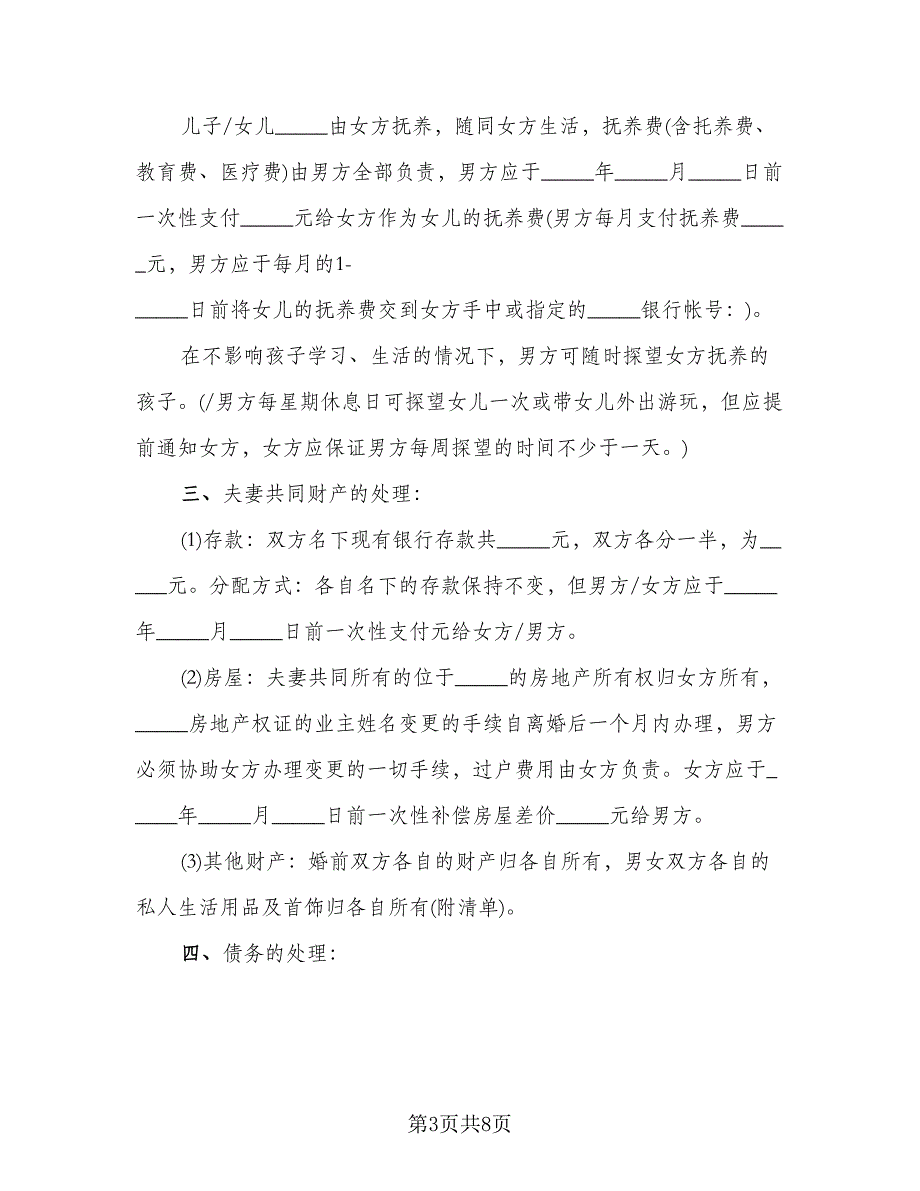 儿子/女儿_____由女方抚养，随同女方生活，抚养费(含托养费、
教育费、医疗费)由男方全部负责，男方应于_____年_____月_____日前
一次性支付_____元给女方作为女儿的抚养费(男方每月支付抚养费____
_元，男方应于每月的1-
_____日前将女儿的抚养费交到女方手中或指定的_____银行帐号：)。
在不影响孩子学习、生活的情况下，男方可随时探望女方抚养的
孩子。(/男方每星期休息日可探望女儿一次或带女儿外出游玩，但应提
前通知女方，女方应保证男方每周探望的时间不少于一天。)
三、夫妻共同财产的处理：
(1)存款：双方名下现有银行存款共_____元，双方各分一半，为__
___元。分配方式：各自名下的存款保持不变，但男方/女方应于_____
年_____月_____日前一次性支付元给女方/男方。
(2)房屋：夫妻共同所有的位于_____的房地产所有权归女方所有，
_____房地产权证的业主姓名变更的手续自离婚后一个月内办理，男方
必须协助女方办理变更的一切手续，过户费用由女方负责。女方应于_
____年_____月_____日前一次性补偿房屋差价_____元给男方。
(3)其他财产：婚前双方各自的财产归各自所有，男女双方各自的
私人生活用品及首饰归各自所有(附清单)。
四、债务的处理：
第3页共8页